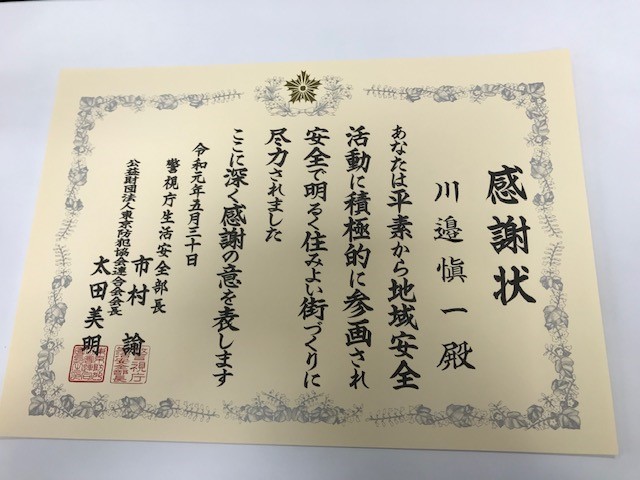 感謝状
川邉愼一殿
あなたは平素から地域安全
活動に積極的に参画され
安全で明るく住みよい街づくりに
尽力されました
ここに深く感謝の意を表します
令和元年五月三十日
警視庁生活安全部長
市村諭
公益財団法人東京防犯協会連合会会長
太田美明